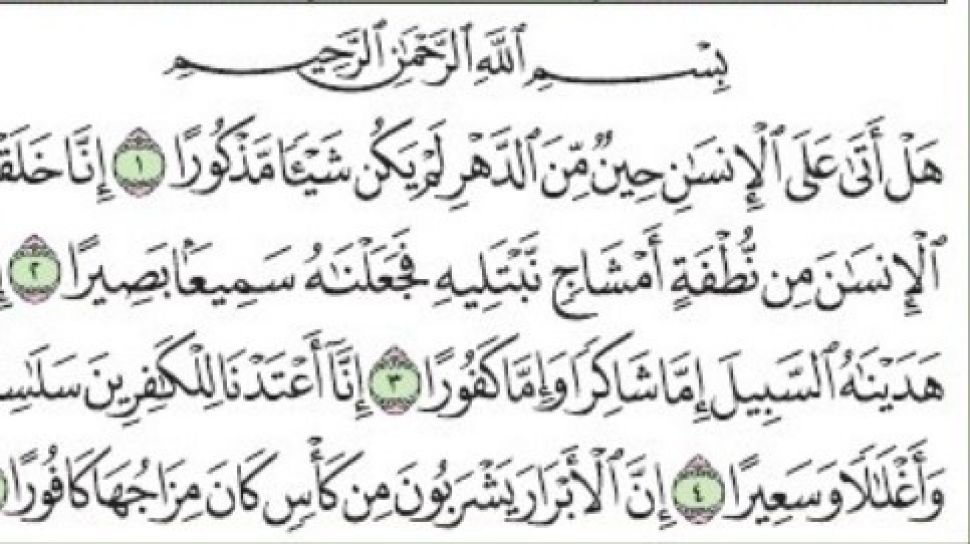 بِسْمِ ٱللَّهِ ٱلرَّحْمَٰنِ ٱلرَّحِيمِ
هَلْ أَتَىٰ عَلَى ٱلْإِنسَٰنِ حِينٌ مِّنَ ٱلدَّهْرِ لَمْ يَكُن شَيْـًٔا مَّذْكُورًا ١ إِنَّا
ٱلْإِنسَٰنَ مِن نُّطْفَةٍ أَمْشَاجٍ نَّبْتَلِيهِ فَجَعَلْنَٰهُ سَمِيعًۢا بَصِيرًا ٢
هَدَيْنَٰهُ ٱلسَّبِيلَ إِمَّا شَاكِرًا وَإِمَّا كَفُورًا ٣ إِنَّآ أَعْتَدْنَا لِلْكَٰفِرِينَ
وَأَغْلَٰلًا وَسَعِيرًا ٤ إِنَّ ٱلْأَبْرَارَ يَشْرَبُونَ مِن كَأْسٍ كَانَ مِزَاجُهَا كَافُورًا